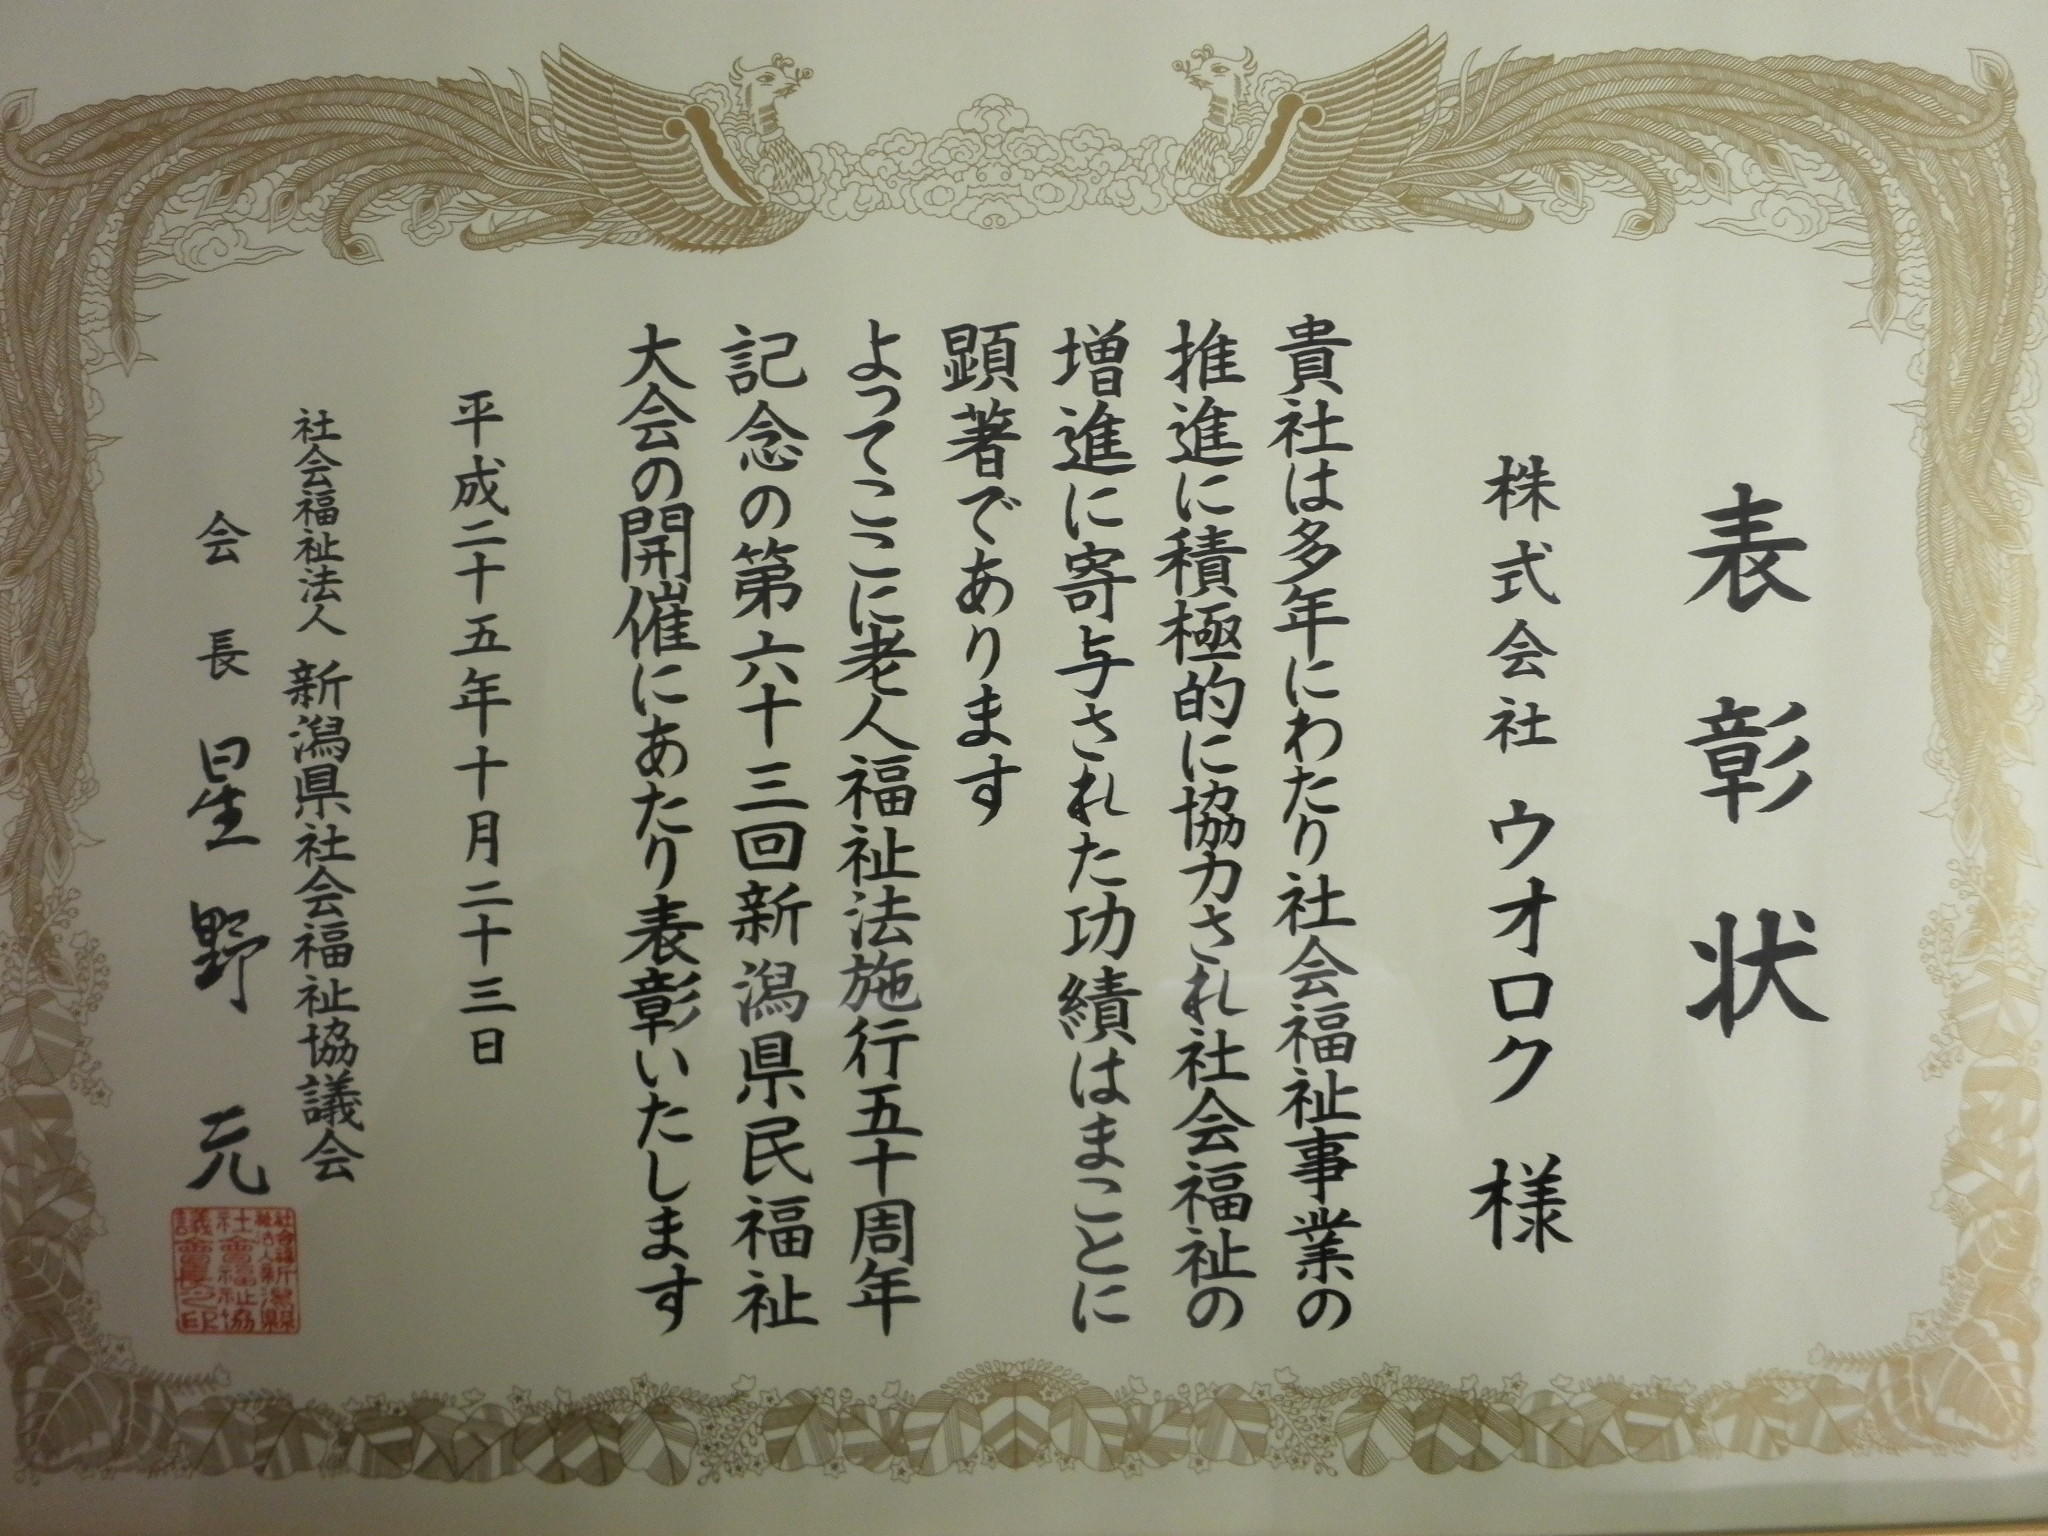 表彰状
株式会社 ウオロク 様
貴社は多年にわたり社会福祉事業の
推進に積極的に協力され社会福祉の
増進に寄与された功績はまことに
顕著であります
よってここに老人福祉法施行五十周年
記念の第六十三回新潟県民福祉
大会の開催にあたり表彰いたします
平成二十五年十月二十三日
社会福祉法人 新潟県社会福祉協議会
会長 星野 元
社会福祉法人新潟県
社會福祉協
議會長之印